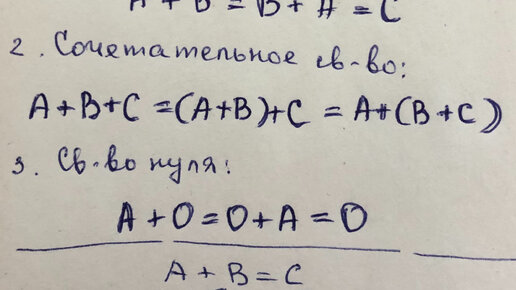 A + B = B + A = C
2. Сочетательное св-во:
A+B+C=(A+B)+C = A+(B+C)
3. Св-во нуля:
A+0=0+A=0
A+B=C